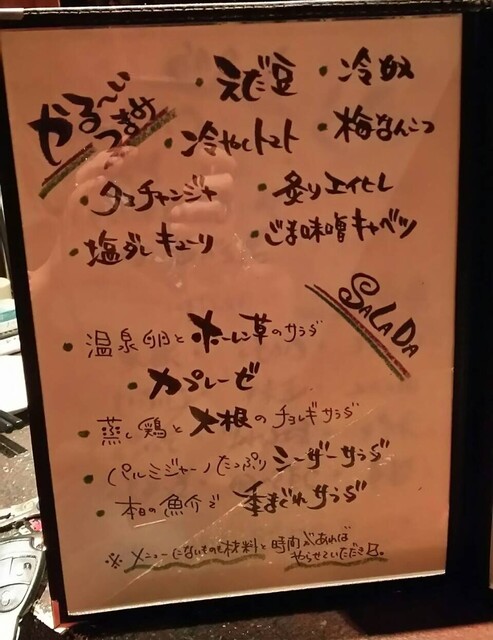 かる〜い
つまめ
・えだ豆
・冷奴
・冷やしトマト
・梅なんこつ
・タコチャンジャ
・炙りエイヒレ
・塩ダレキューリ
・ごま味噌キャベツ
SALADA
・温泉卵とホーレン草のサラダ
・カプレーゼ
・蒸し鶏と大根のチョレギサラダ
・パルミジャーノたっぷりシーザーサラダ
・本日の魚介で季まぐれサラダ
※メニューにないものも材料と時間があれば
やらせていただき日。